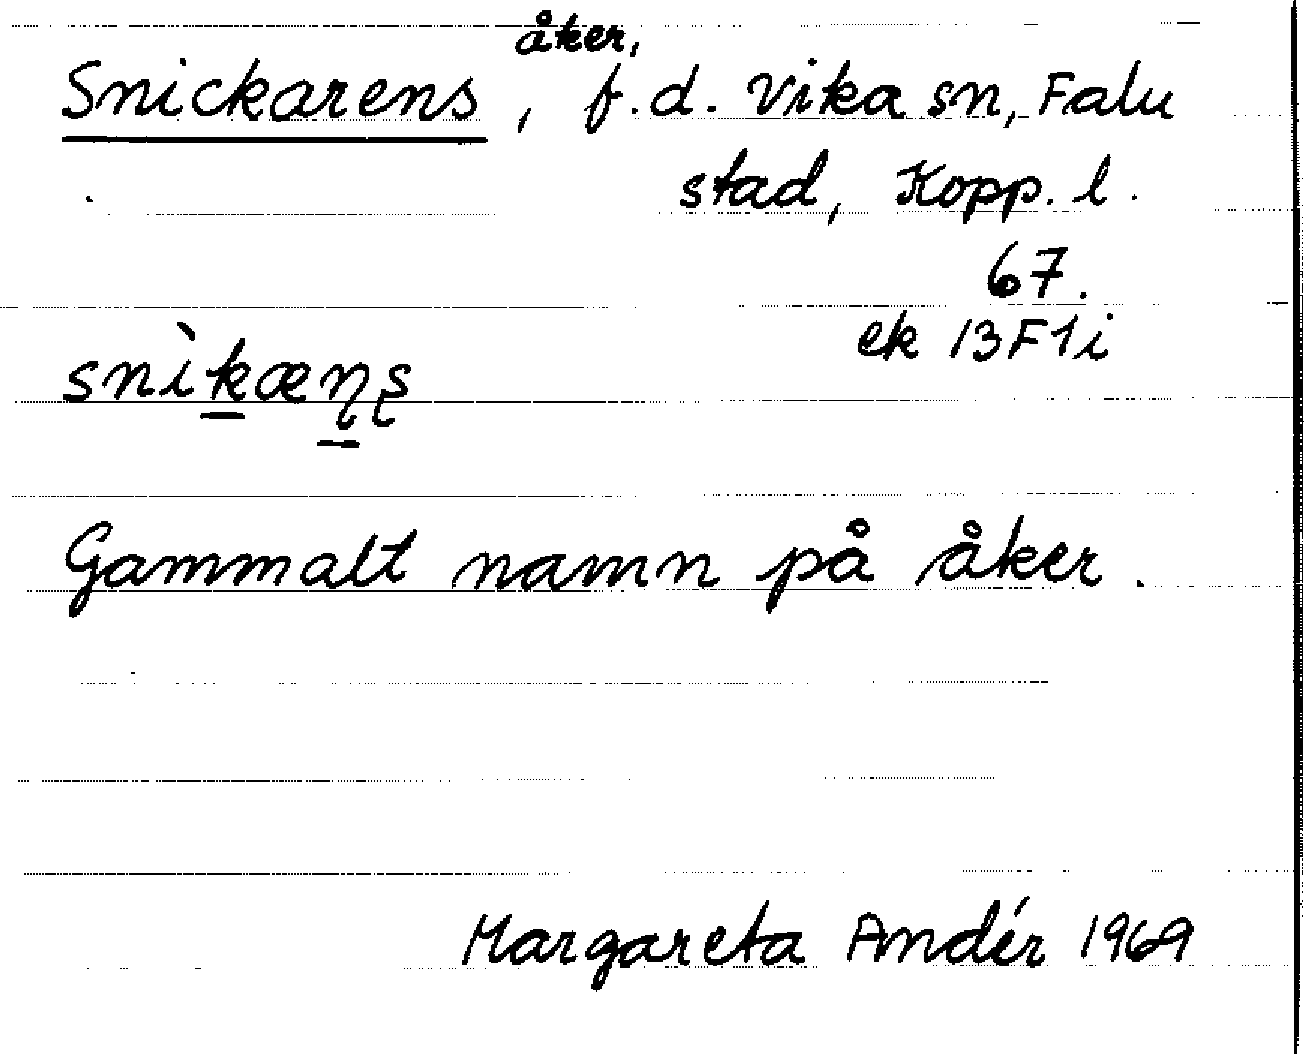 åker,
Snickarens, f.d. Vika sn, Falu
stad, Kopp. l.
67.
ek 13F1i
snìkæɳʂ
Gammalt namn på åker.
Margareta Andér 1969